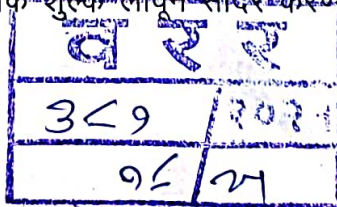 शुल्क लावून सादर
व र र
३८१ / २०२१
१८ / २५